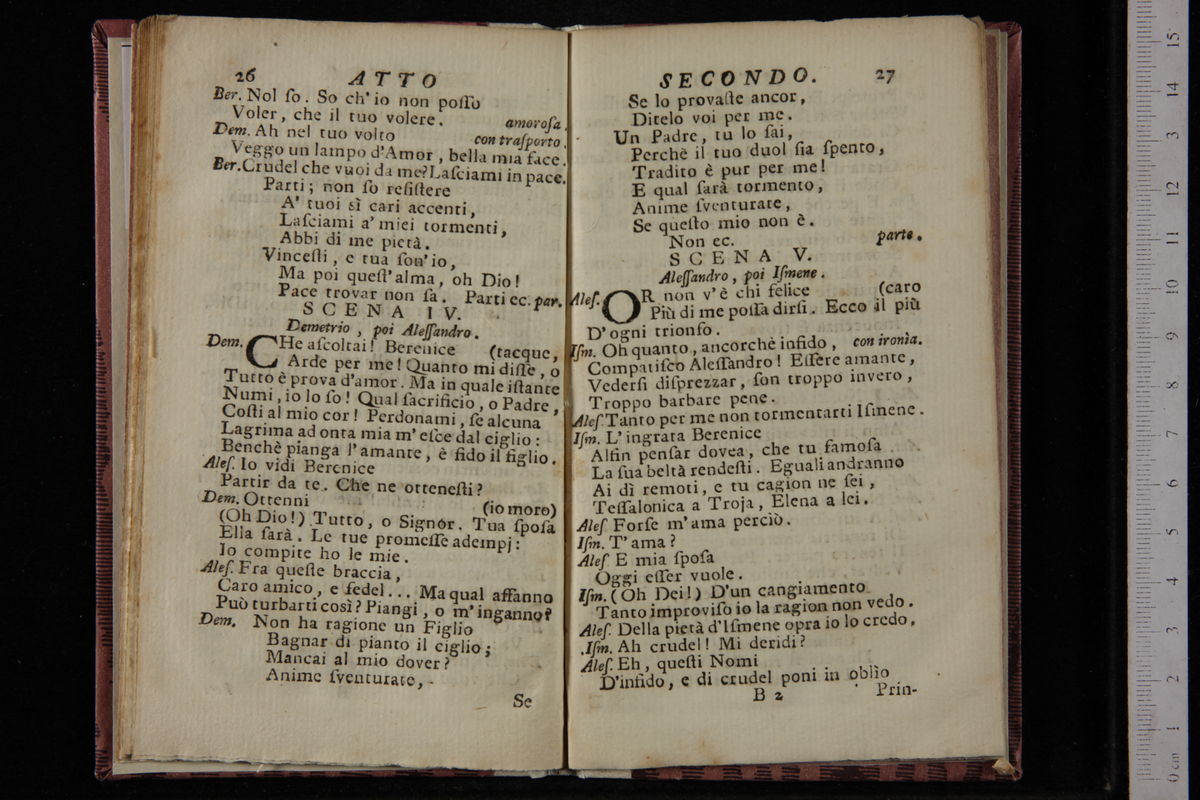 26 ATTO
Ber. Nol ſo. So ch'io non poſſo
Voler, che il tuo volere. amoroſa.
Dem. Ah nel tuo volto con traſporto.
Veggo un lampo d'Amor, bella mia face.
Ber. Crudel che vuoi da me? Laſciami in pace.
Parti; non ſo reſiſtere
A' tuoi sì cari accenti,
Laſciami a' miei tormenti,
Abbi di me pietà.
Vinceſti, e tua ſon'io,
Ma poi queſt'alma, oh Dio!
Pace trovar non ſa. Parti ec. par.
SCENA IV.
Demetrio, poi Aleſſandro.
Dem. CHe aſcoltai! Berenice (tacque,
Arde per me! Quanto mi diſſe, o
Tutto è prova d'amor. Ma in quale iſtante
Numi, io lo ſo! Qual ſacrificio, o Padre,
Coſti al mio cor! Perdonami, ſe alcuna
Lagrima ad onta mia m'eſce dal ciglio:
Benchè pianga l'amante, è fido il figlio.
Aleſ. Io vidi Berenice
Partir da te. Che ne otteneſti?
Dem. Ottenni (io moro)
(Oh Dio!) Tutto, o Signór. Tua ſpoſa
Ella ſarà. Le tue promeſſe adempj:
Io compite ho le mie.
Aleſ. Fra queſte braccia,
Caro amico, e fedel... Ma qual affanno
Può turbarti così? Piangi, o m'inganno?
Dem. Non ha ragione un Figlio
Bagnar di pianto il ciglio;
Mancai al mio dover?
Anime ſventurate,
Se
SECONDO. 27
Se lo provaſte ancor,
Ditelo voi per me.
Un Padre, tu lo ſai,
Perchè il tuo duol ſia ſpento,
Tradito è pur per me!
E qual ſarà tormento,
Anime ſventurate,
Se queſto mio non è.
Non ec. parte.
SCENA V.
Aleſſandro, poi Iſmene.
Aleſ. OR non v'è chi felice (caro
Più di me poſſa dirſi. Ecco il più
D'ogni trionfo.
Iſm. Oh quanto, ancorchè infido, con ironìa.
Compatiſco Aleſſandro! Eſſere amante,
Vederſi diſprezzar, ſon troppo invero,
Troppo barbare pene.
Aleſ. Tanto per me non tormentarti Iſmene.
Iſm. L'ingrata Berenice
Alfin penſar dovea, che tu famoſa
La ſua beltà rendeſti. Eguali andranno
Ai dì remoti, e tu cagion ne ſei,
Teſſalonica a Troja, Elena a lei.
Aleſ. Forſe m'ama perciò.
Iſm. T'ama?
Aleſ. E mia ſpoſa
Oggi eſſer vuole.
Iſm. (Oh Dei!) D'un cangiamento
Tanto improviſo io la ragion non vedo.
Aleſ. Della pietà d'Iſmene opra io lo credo.
Iſm. Ah crudel! Mi deridi?
Aleſ. Eh, queſti Nomi
D'infido, e di crudel poni in oblìo
B 2 Prin-
0 cm 1 2 3 4 5 6 7 8 9 10 11 12 13 14 15